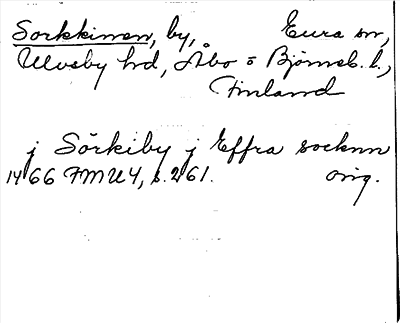 Sorkkinen, by, Eura sn,
Ulvsby hd, Åbo o Björneb. l.,
Finland
j Sörkiby j Effra socknn
1466 FMU4, s. 261. orig.